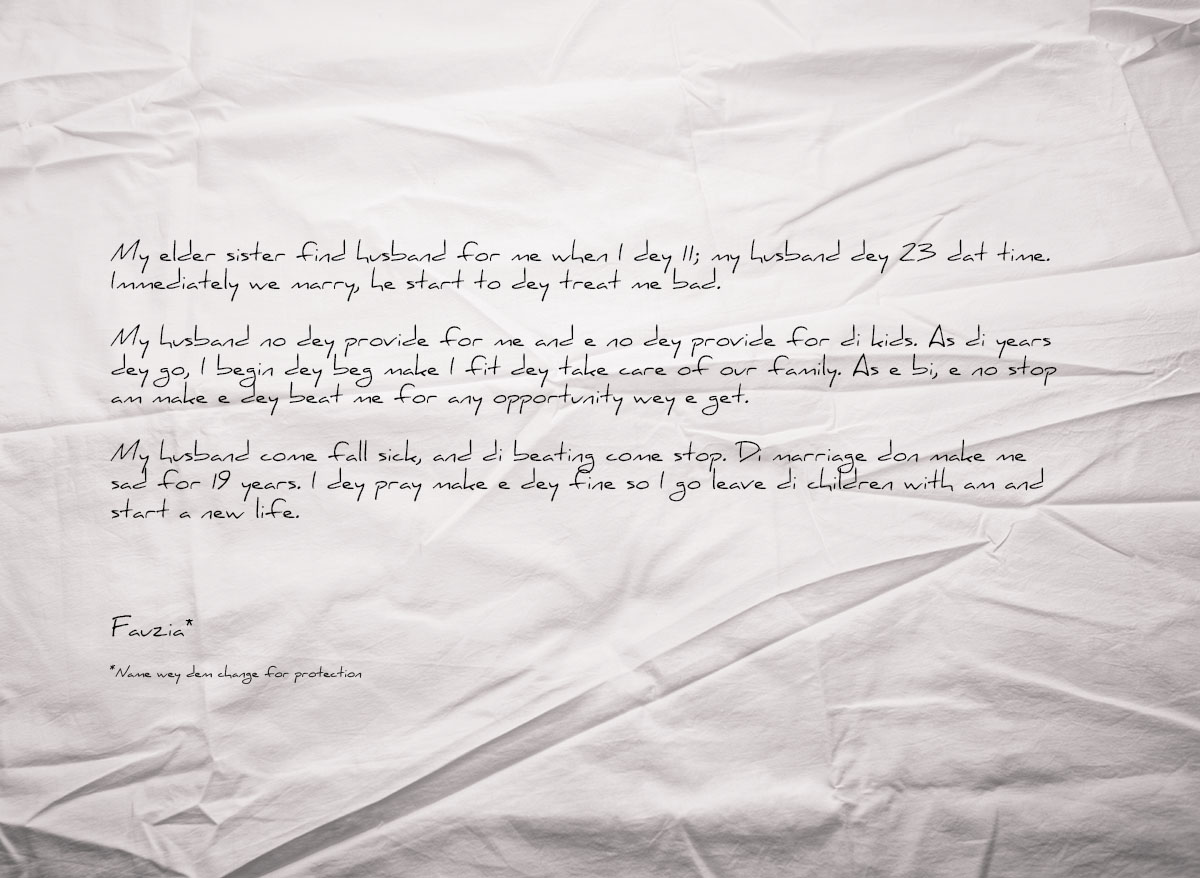 My elder sister find husband for me when I dey 11; my husband dey 23 dat time.
Immediately we marry, he start to dey treat me bad.
My husband no dey provide for me and e no dey provide for di kids. As di years
dey go, I begin dey beg make I fit dey take care of our family. As e bi, e no stop
am make e dey beat me for any opportunity wey e get.
My husband come fall sick, and di beating come stop. Di marriage don make me
sad for 19 years. I dey pray make e dey fine so I go leave di children with am and
start a new life.
Fauzia*
*Name wey dem change for protection